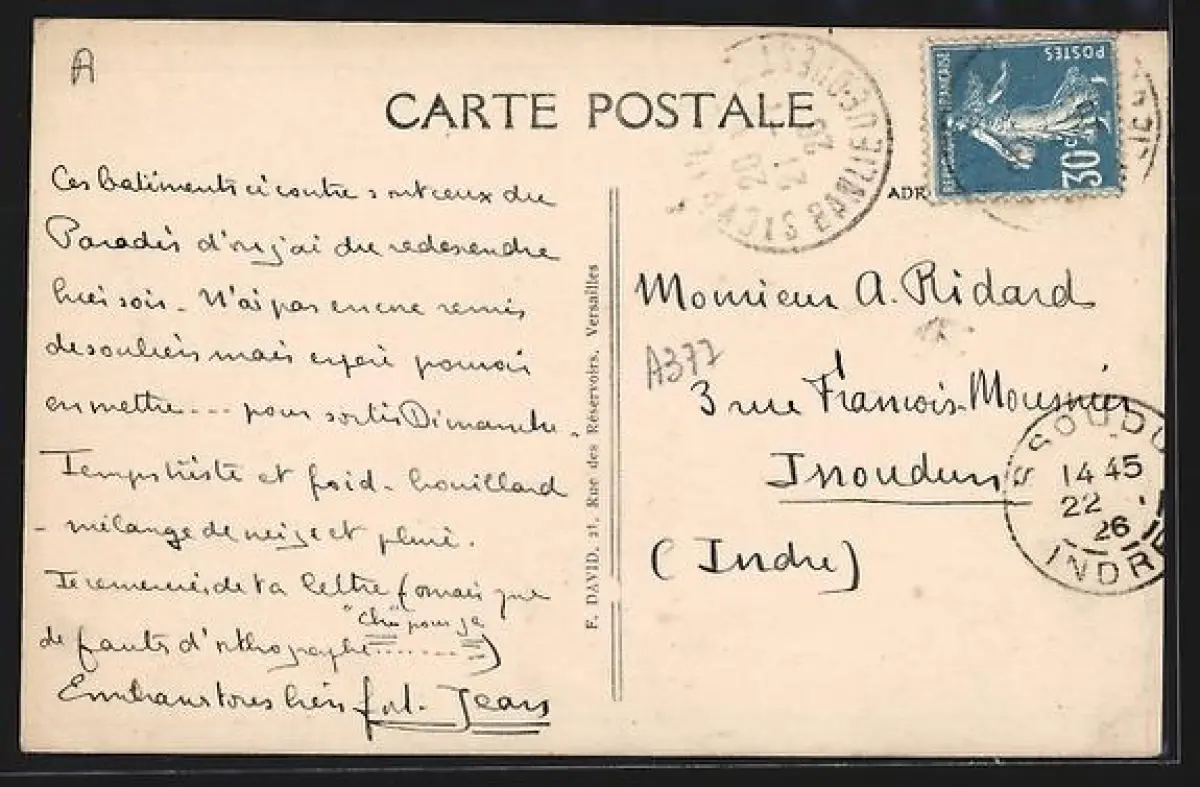 A
CARTE POSTALE
Ces batiments ci contre sont ceux du
Paradis d'où j'ai du redescendre
hier soir - N'ai pas encore remis
de souliers mais espère pouvoir
en mettre --- pour sortir Dimanche.
Temps triste et froid - brouillard
- mélange de neige et pluie.
Te remercie de ta lettre (mais que
"Chu" pour ça
de fautes d'orthographe.......!!)
Embrasse tous bien fort. Jean
F. DAVID, 21, Rue des Réservoirs, Versailles
OUEST BANLIEUE
20
21
26
ADR
POSTES
FRANÇAISE
30c
Monsieur A. Ridard
A377
3 rue François-Mousnier
Issoudun
(Indre)
SSOUDU
14 45
22
26
INDRE